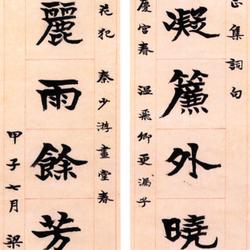 正 集詞句
凝簾外曉
慶宮春 溫飛卿更漏子
花犯 秦少游畫堂春
麗雨餘芳
甲子七月 梁